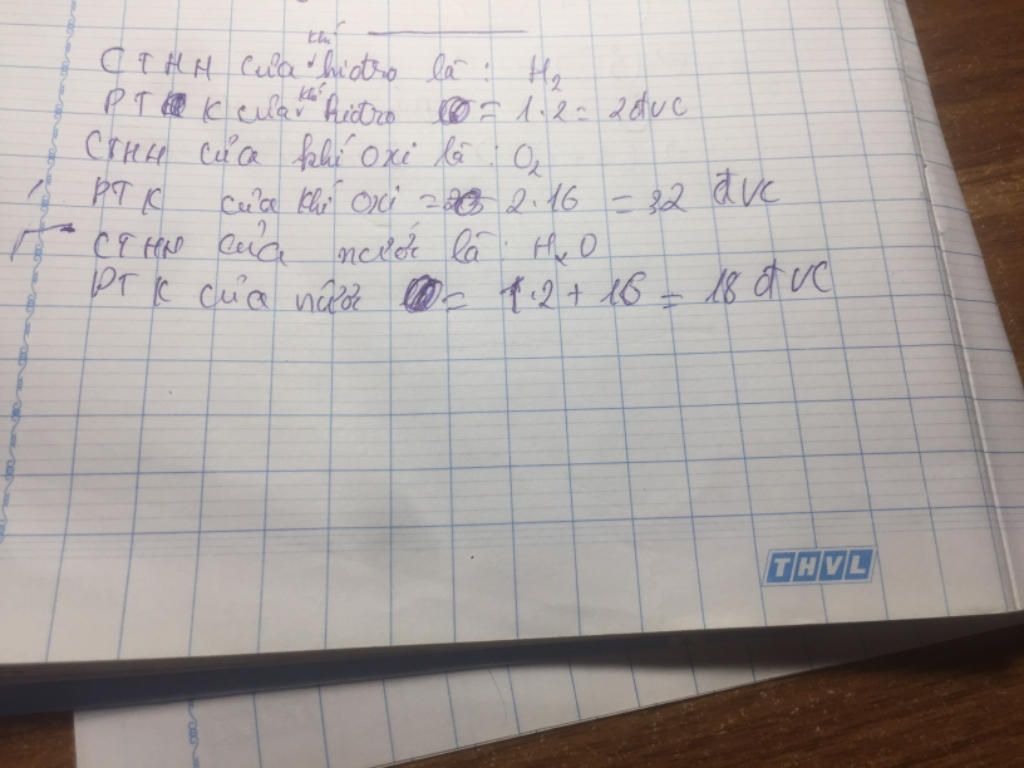 CTHH của khí hiđro là : H2
PTK của khí hiđro = 1.2 = 2đvc
CTHH của khí oxi là : O2
PTK của khí oxi = 2.16 = 32 đvc
CTHH của nước là : H2O
PTK của nước = 1.2 + 16 = 18 đvc
THVL